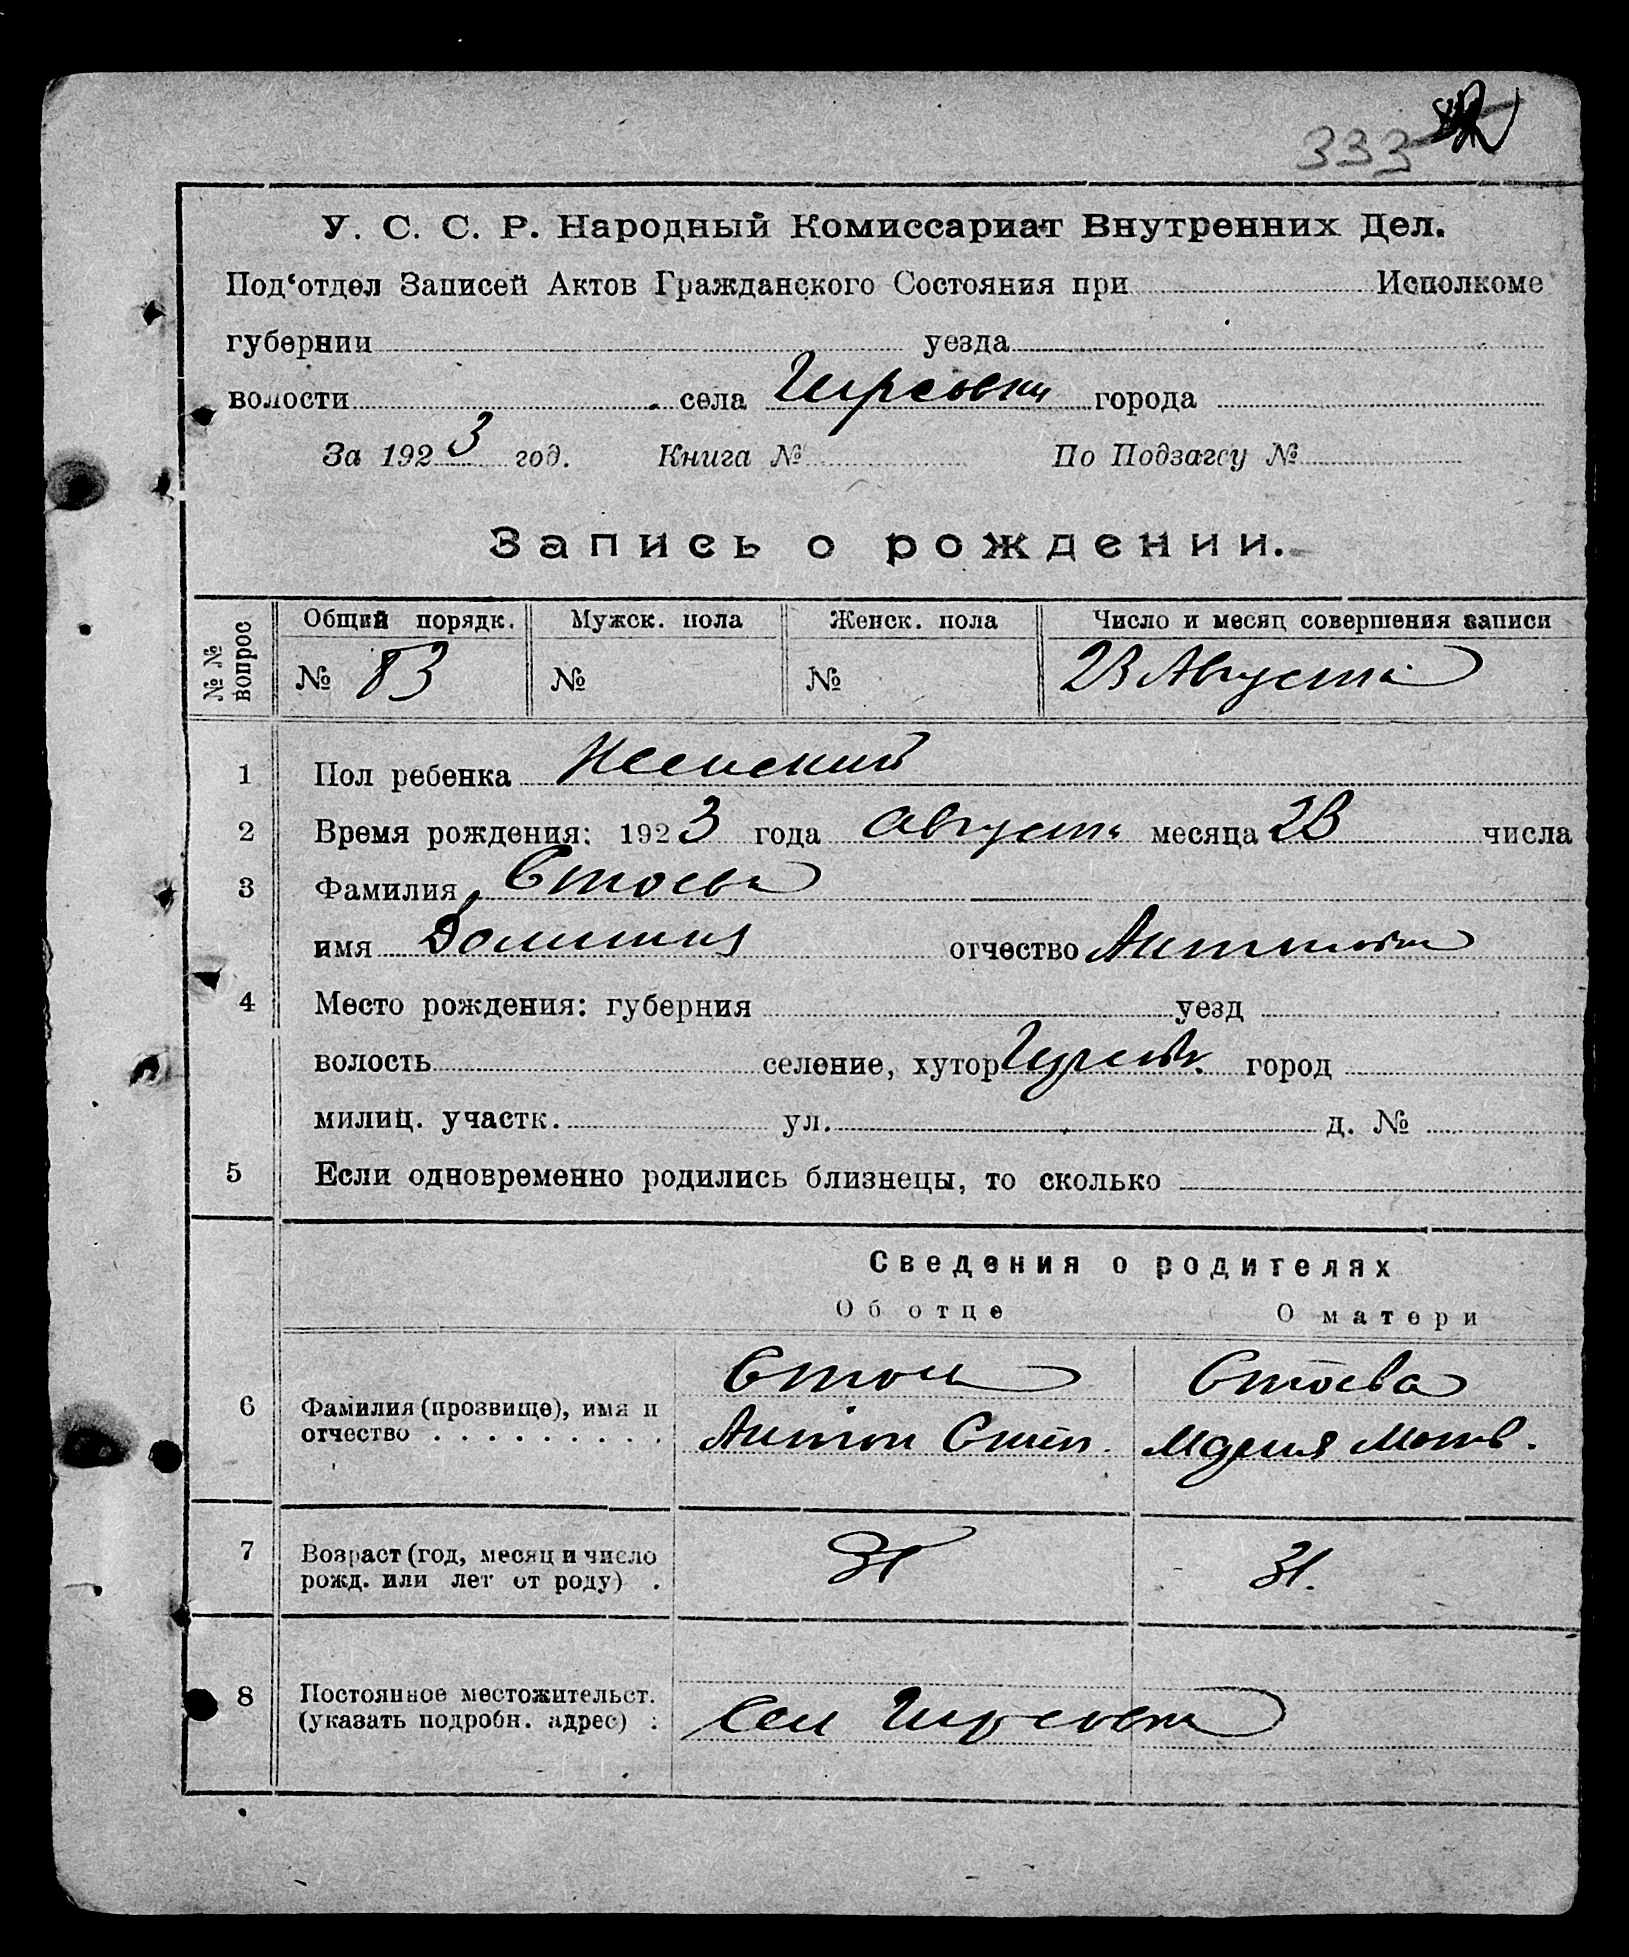 333
У. С. С. Р. Народный Комиссариат Внутренних Дел.
Под‘отдел Записей Актов Гражданского Состояния при Исполкоме
губернии уезда
волости села Гирсовки города
За 1923 год. Книга № По Подзагсу №
Запись о рождении.
№№ вопрос Общий порядк. Мужск. пола Женск. пола Число и месяц совершения записи
№ 83 № № 23 Августа
1 Пол ребенка Женский
2 Время рождения: 1923 года Августа месяца 23 числа
3 Фамилия Стоева
имя отчество Антоновна
4 Место рождения: губерния уезд
волость селение, хутор город
милиц. участк. ул. д. №
5 Если одновременно родились близнецы, то сколько
Сведения о родителях
Об отце О матери
6 Фамилия (прозвище), имя и отчество . . . . . . . . . Стоев Стоева
Антон Степ. Мария Матв.
7 Возраст (год, месяц и число рожд. или лет от роду) . 31 31.
8 Постоянное местожительст. (указать подробн. адрес) : Село Гирсовка